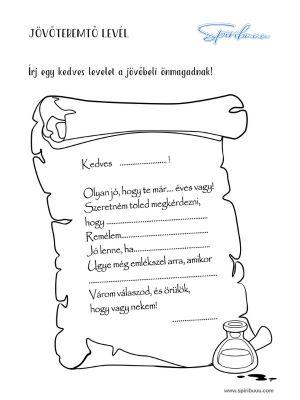 JÖVŐTEREMTŐ LEVÉL
Spiribuuu
Írj egy kedves levelet a jövőbeli önmagadnak!
Kedves ........................ !
Olyan jó, hogy te már.... éves vagy!
Szeretném toled megkérdezni,
hogy ................................................
Remélem..........................................
Jó lenne, ha......................................
Ugye még emlékszel arra, amikor
......................................................
Várom válaszod, és örülök,
hogy vagy nekem!
......................
www.spiribuuu.com